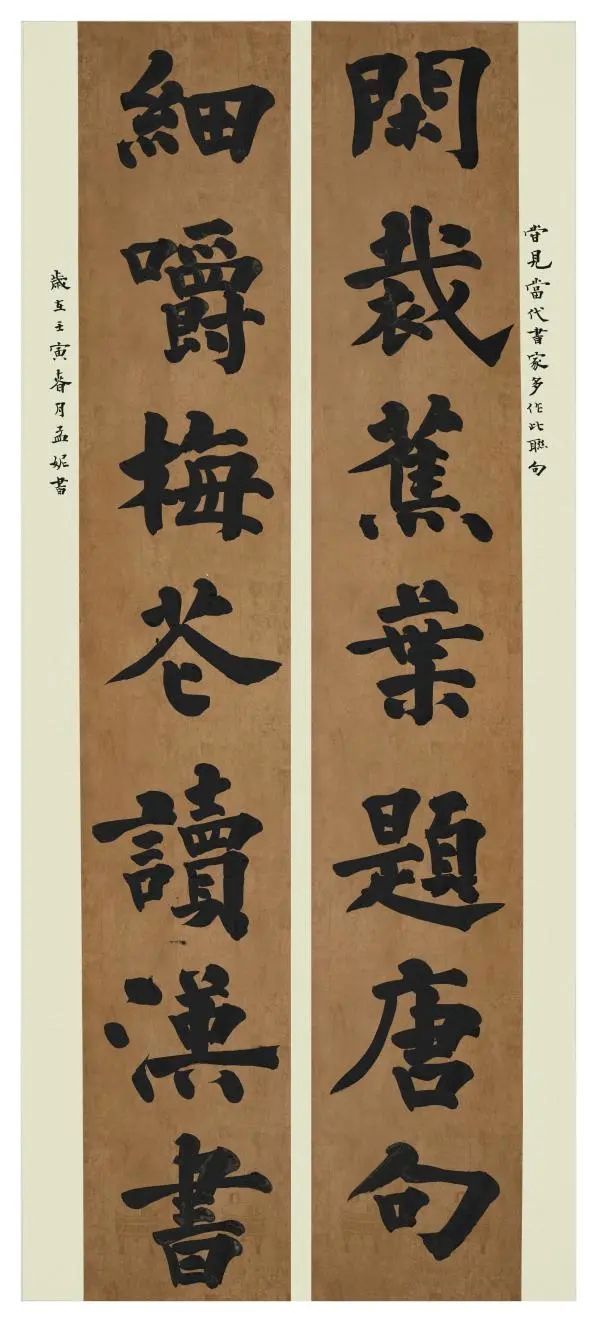 嘗見當代書家多作此聯句
閑裁蕉葉題唐句
細嚼梅花讀漢書
歲在壬寅春月孟妮書